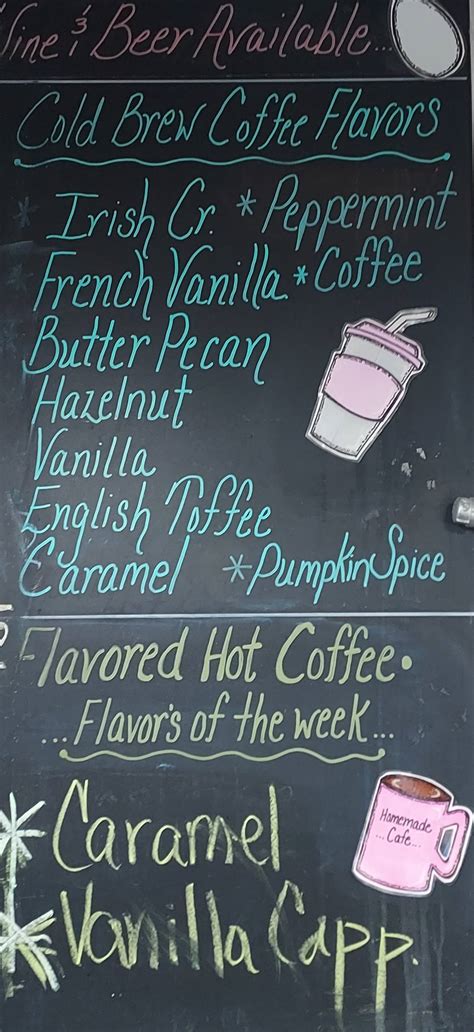 Wine & Beer Available...
Cold Brew Coffee Flavors
* Irish Cr. * Peppermint
French Vanilla * Coffee
Butter Pecan
Hazelnut
Vanilla
English Toffee
Caramel * Pumpkin Spice
Flavored Hot Coffee.
...Flavor's of the week...
* Caramel
* Vanilla Capp.
Homemade
...Cafe...